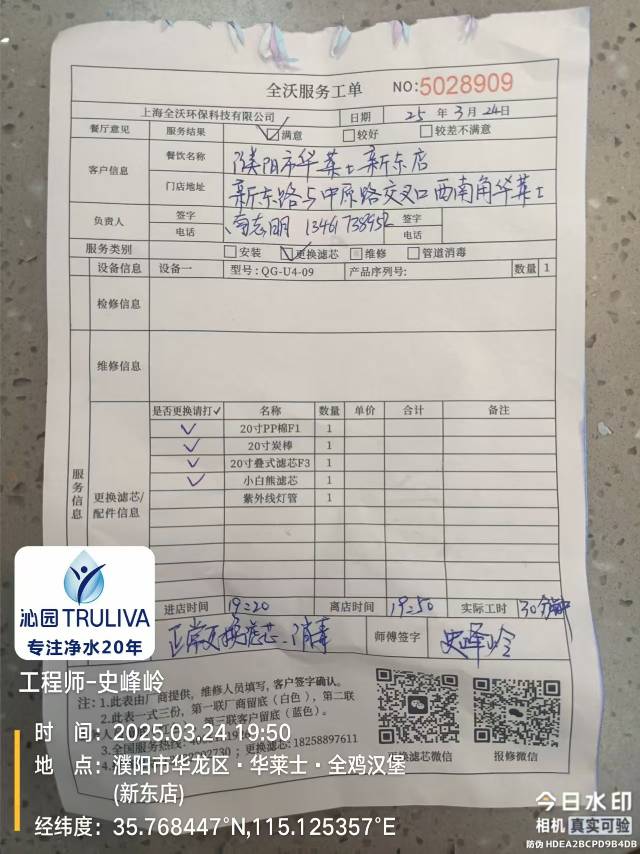 全沃服务工单 NO:5028909
上海全沃环保科技有限公司 日期 25 年 3 月 24 日
餐厅意见 服务结果 ☑满意 □较好 □较差不满意
客户信息 餐饮名称 濮阳市华莱士新东店
门店地址 新东路与中原路交叉口西南角华莱士
负责人 签字 志明 签字
电话 电话
服务类别 □安装 ☑更换滤芯 □维修 □管道消毒
设备信息 设备一 型号:QG-U4-09 产品序列号: 数量 1
检修信息
维修信息
服务信息
更换滤芯/配件信息
是否更换请打✓ 名称 数量 单价 合计 备注
✓ 20寸PP棉F1 1
✓ 20寸炭棒 1
✓ 20寸叠式滤芯F3 1
✓ 小白熊滤芯 1
紫外线灯管 1
进店时间 19:20 离店时间 19:50 实际工时 30分钟
正常更换滤芯、消毒 师傅签字 史峰岭
注:1.此表由厂商提供，维修人员填写，客户签字确认。
2.此表一式三份，第一联厂商留底（白色），第二联
第三联客户留底（蓝色）。
3.全国服务热线:
02730；更换滤芯:18258897611
更换滤芯微信 报修微信
沁园 TRULIVA
专注净水20年
工程师-史峰岭
时 间: 2025.03.24 19:50
地 点: 濮阳市华龙区·华莱士·全鸡汉堡
(新东店)
经纬度: 35.768447°N,115.125357°E
今日水印
相机 真实可验
防伪 HDEA2BCPD9B4DB